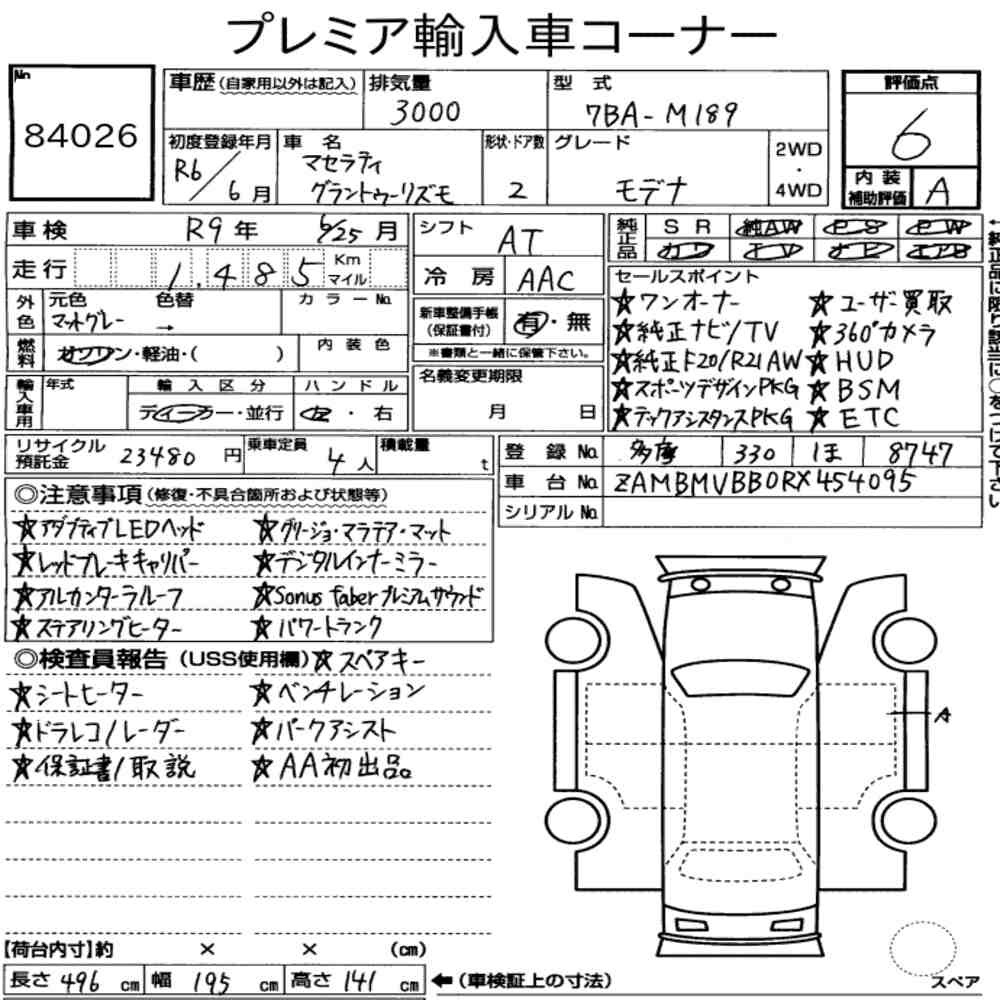 プレミア輸入車コーナー
No
84026
車歴(自家用以外は記入)
排気量
3000
型式
7BA-M189
評価点
6
内装補助評価 A
初度登録年月
R6/6月
車名
マセラティ
グラントゥーリズモ
形状・ドア数
2
グレード
モデナ
2WD
・
4WD
車検 R9年 6/25月
走行 1,485 Km マイル
外色 元色 色替 カラーNo.
マットグレー →
燃料 ガソリン・軽油・( )
内装色
輸入車用 年式
輸入区分
ディーラー・並行
ハンドル
左・右
シフト AT
冷房 AAC
新車整備手帳
(保証書付)
有・無
※書類と一緒に保管下さい。
名義変更期限
月 日
純正品 SR 純AW PS PW
カワ TV ナビ エアB
セールスポイント
★ワンオーナー ★ユーザー買取
★純正ナビ/TV ★360°カメラ
★純正F20/R21AW ★HUD
★スポーツデザインPKG ★BSM
★テックアシスタンスPKG ★ETC
←純正品に限り該当に○をつけて下さい
リサイクル預託金 23480円
乗車定員 4人
積載量 t
登録No. 多摩 330 1ま 8747
車台No. ZAMBMVBB0RX454095
シリアルNo.
◎注意事項(修復・不具合箇所および状態等)
★アダプティブLEDヘッド ★グリージョ・マラテア・マット
★レッドブレーキキャリパー ★デジタルインナーミラー
★アルカンターラルーフ ★Sonus faberプレミアムサウンド
★ステアリングヒーター ★パワートランク
◎検査員報告(USS使用欄)★スペアキー
★シートヒーター ★ベンチレーション
★ドラレコ/レーダー ★パークアシスト
★保証書/取説 ★AA初出品
A
【荷台内寸】約 × × (cm)
長さ 496 cm 幅 195 cm 高さ 141 cm ←(車検証上の寸法)
スペア